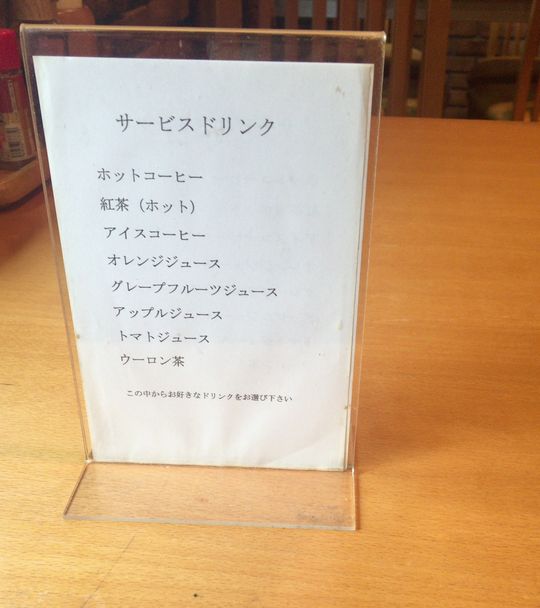 サービスドリンク
ホットコーヒー
紅茶（ホット）
アイスコーヒー
オレンジジュース
グレープフルーツジュース
アップルジュース
トマトジュース
ウーロン茶
この中からお好きなドリンクをお選び下さい